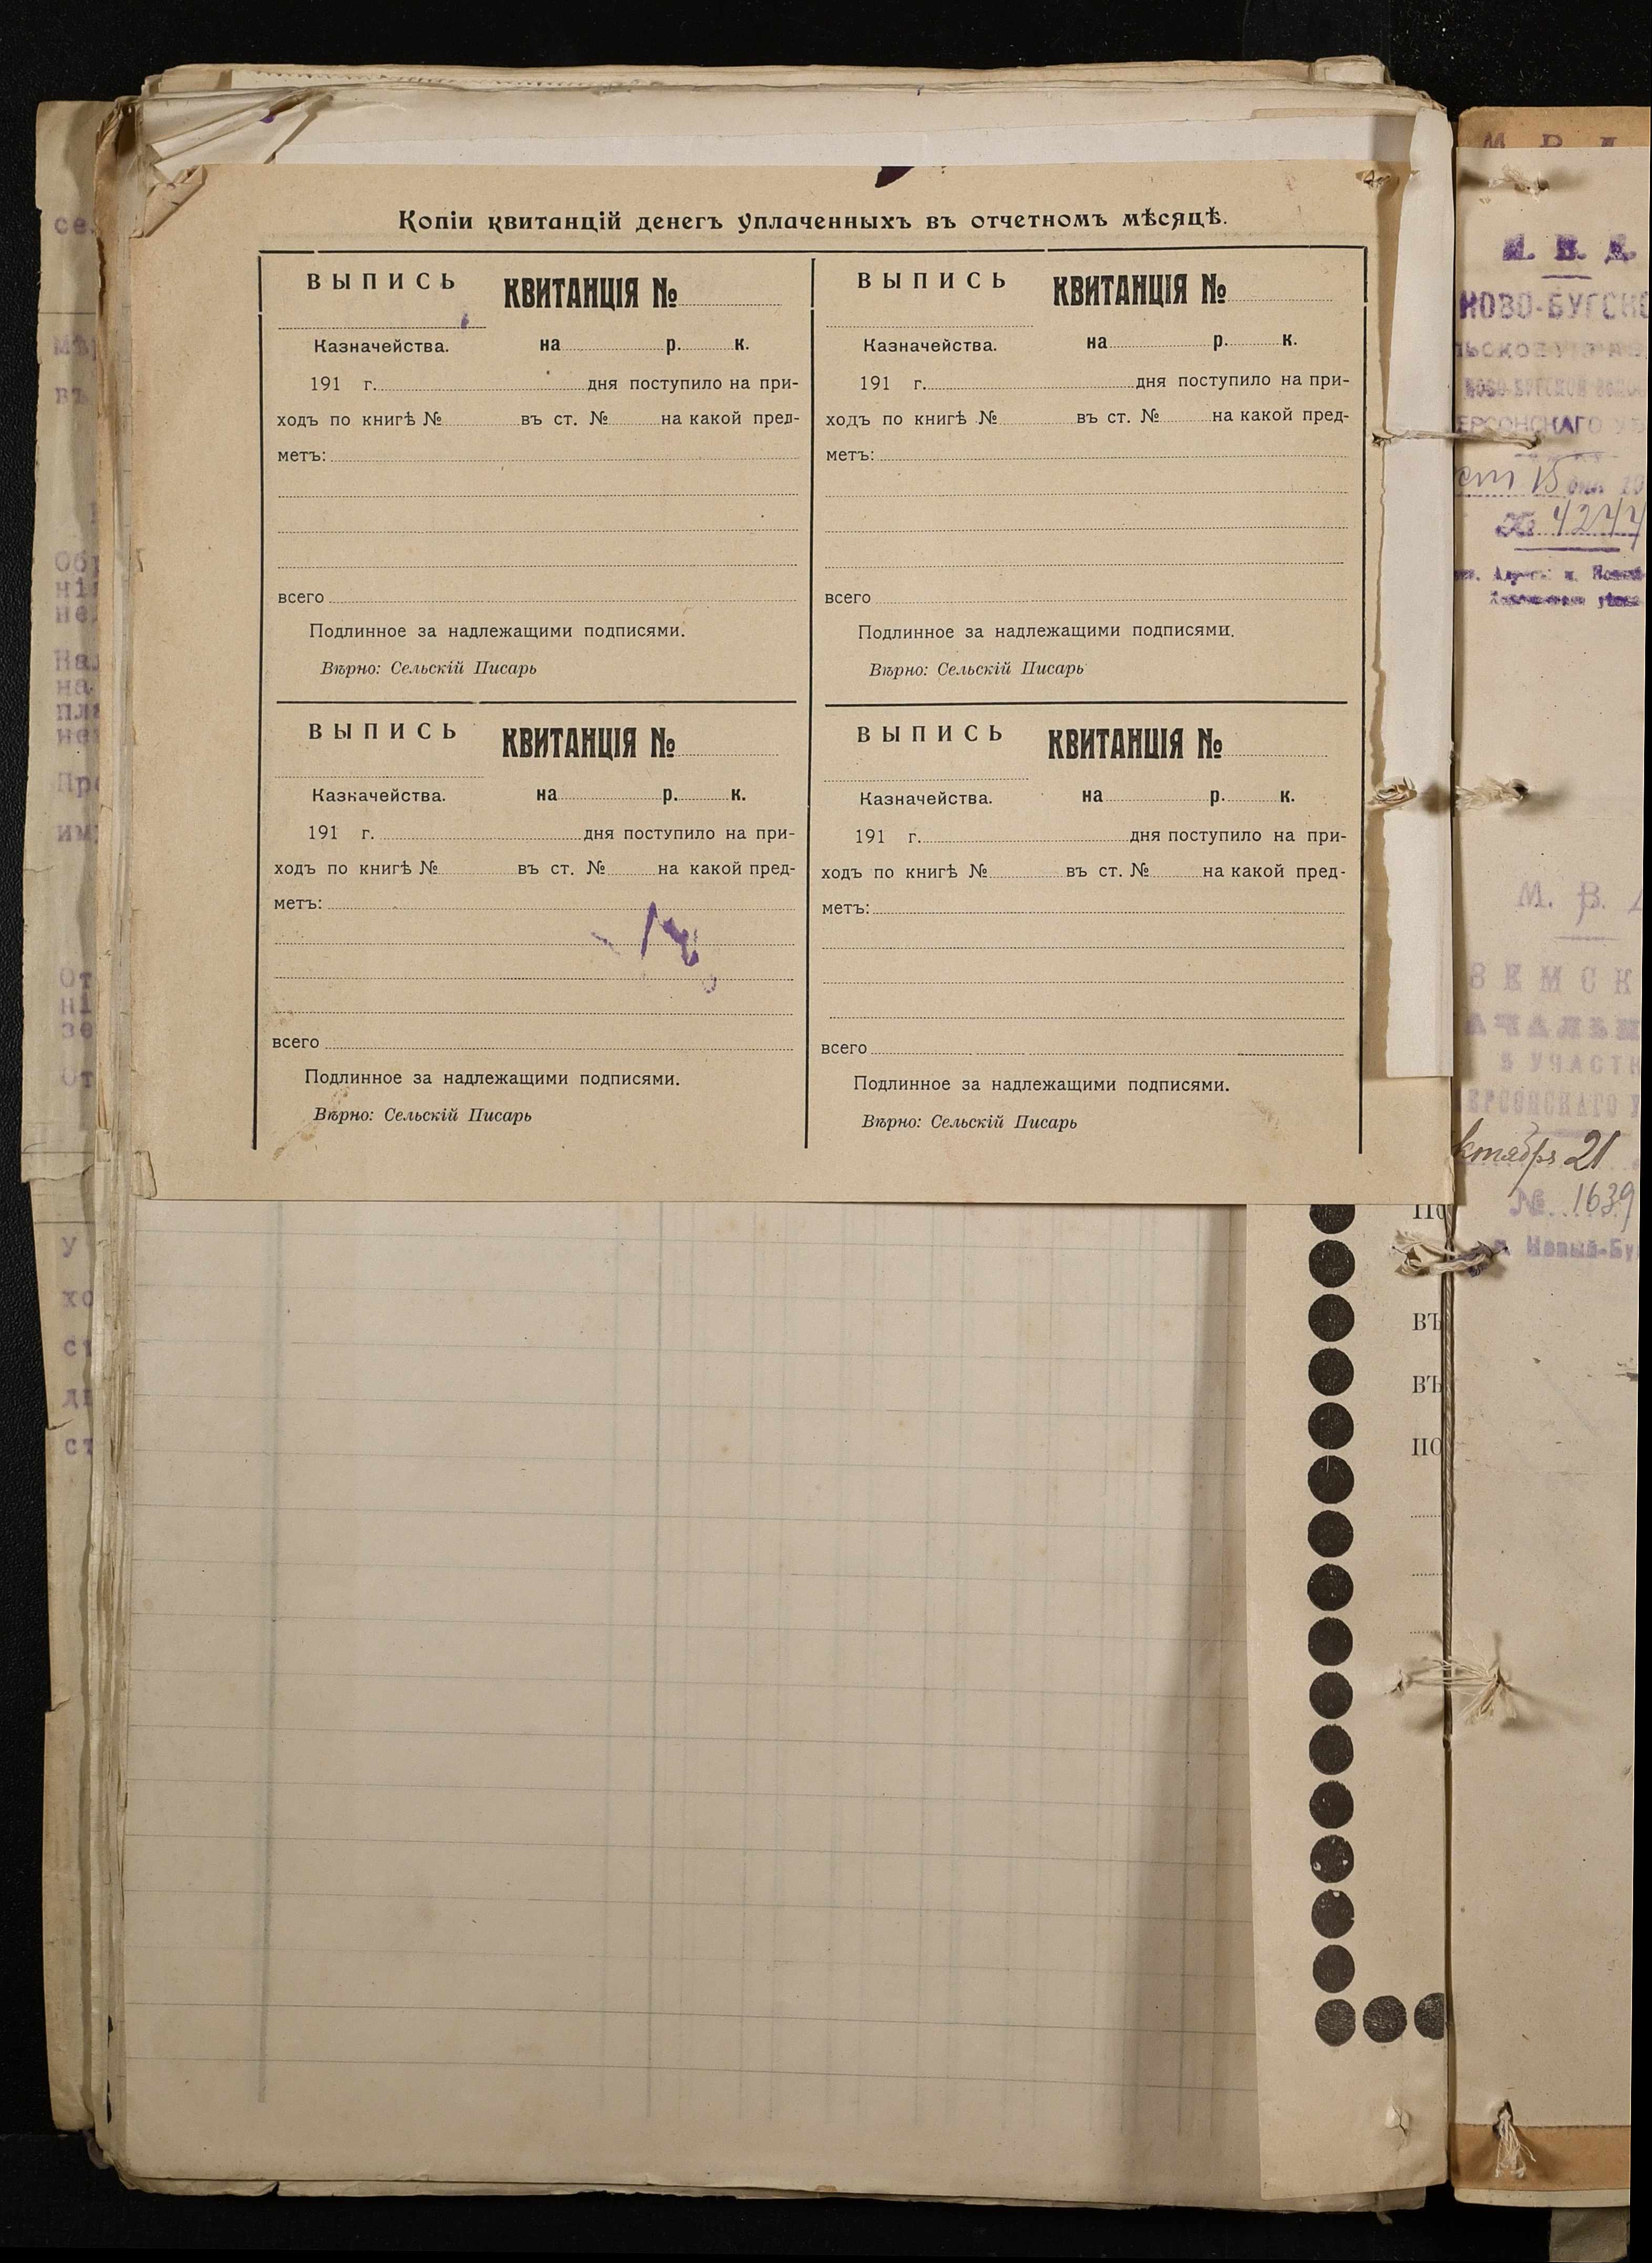 Копіи квитанцій денегъ уплаченныхъ въ отчетномъ мѣсяцѣ.
ВЫПИСЬ КВИТАНЦІЯ №
Казначейства. на р. к.
191 г. дня поступило на при-
ходъ по книгѣ № въ ст. № на какой пред-
метъ:
всего
Подлинное за надлежащими подписями.
Вѣрно: Сельскій Писарь
ВЫПИСЬ КВИТАНЦІЯ №
Казначейства. на р. к.
191 г. дня поступило на при-
ходъ по книгѣ № въ ст. № на какой пред-
метъ:
всего
Подлинное за надлежащими подписями.
Вѣрно: Сельскій Писарь
ВЫПИСЬ КВИТАНЦІЯ №
Казкачейства. на р. к.
191 г. дня поступило на при-
ходъ по книгѣ № въ ст. № на какой пред-
метъ:
всего
Подлинное за надлежащими подписями.
Вѣрно: Сельскій Писарь
ВЫПИСЬ КВИТАНЦІЯ №
Казначейства. на р. к.
191 г. дня поступило на при-
ходъ по книгѣ № въ ст. № на какой пред-
метъ:
всего
Подлинное за надлежащими подписями.
Вѣрно: Сельскій Писарь
ВЪ
ВЪ
ПО
М. В. Д.
НОВО-БУГСКО
ЕРСОНСКАГО
15
№ 4244
М. В.
ЗЕМСК
5 УЧАСТК
ЕРСОНСКАГО
ктября 21
№ 1639
Новый-Бу